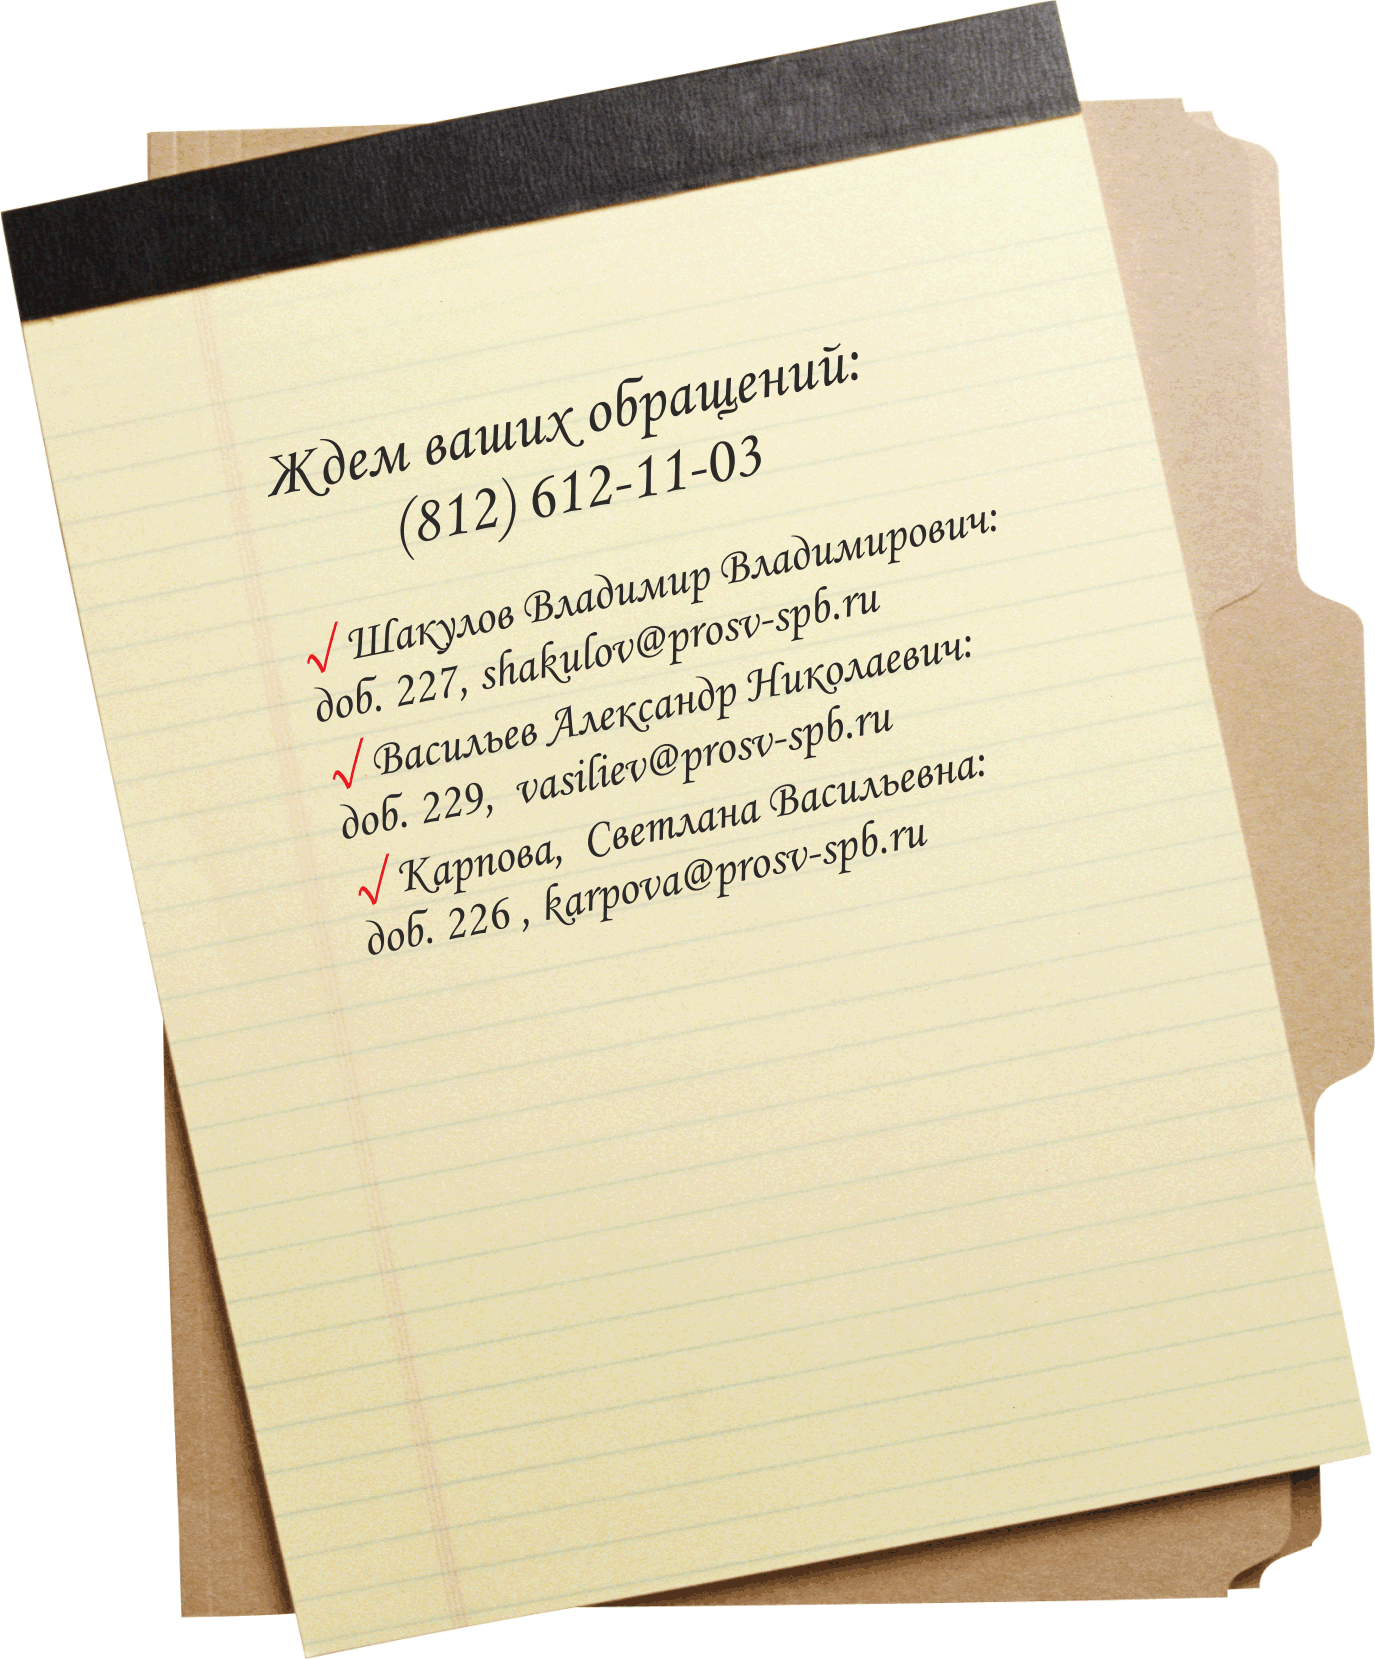 Ждем ваших обращений:
(812) 612-11-03
√ Шакулов Владимир Владимирович:
доб. 227, shakulov@prosv-spb.ru
√ Васильев Александр Николаевич:
доб. 229, vasiliev@prosv-spb.ru
√ Карпова, Светлана Васильевна:
доб. 226 , karpova@prosv-spb.ru